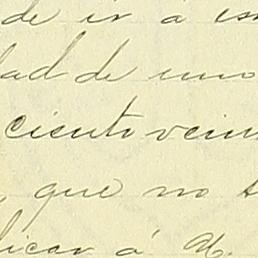 de ir á es
dad de uno
ciento vein
, que no s
licar á U.